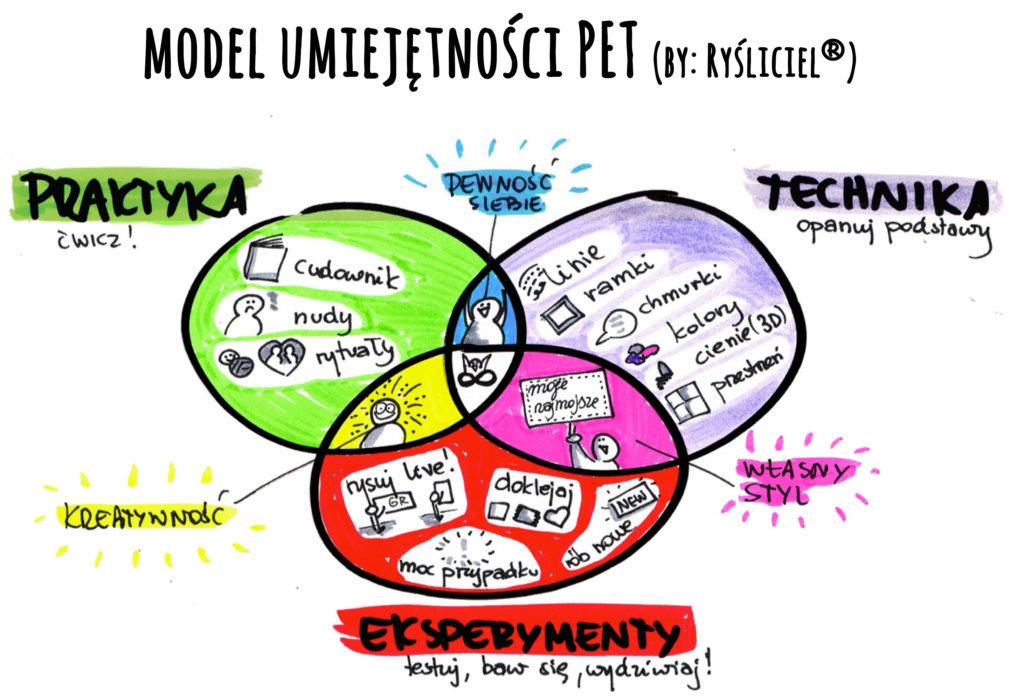 MODEL UMIEJĘTNOŚCI PET (BY: RYŚLICIEL®)
PRAKTYKA
ćwicz!
PEWNOŚĆ
SIEBIE
TECHNIKA
opanuj podstawy
cudownik
nudy
rytuały
linie
ramki
chmurki
kolory
cienie (3D)
przestrzeń
moje
najmojsze
KREATYWNOŚĆ
WŁASNY
STYL
rysuj live!
GR
doklejaj
NEW
rób nowe
moc przypadku
EKSPERYMENTY
testuj, baw się, wydziwiaj!